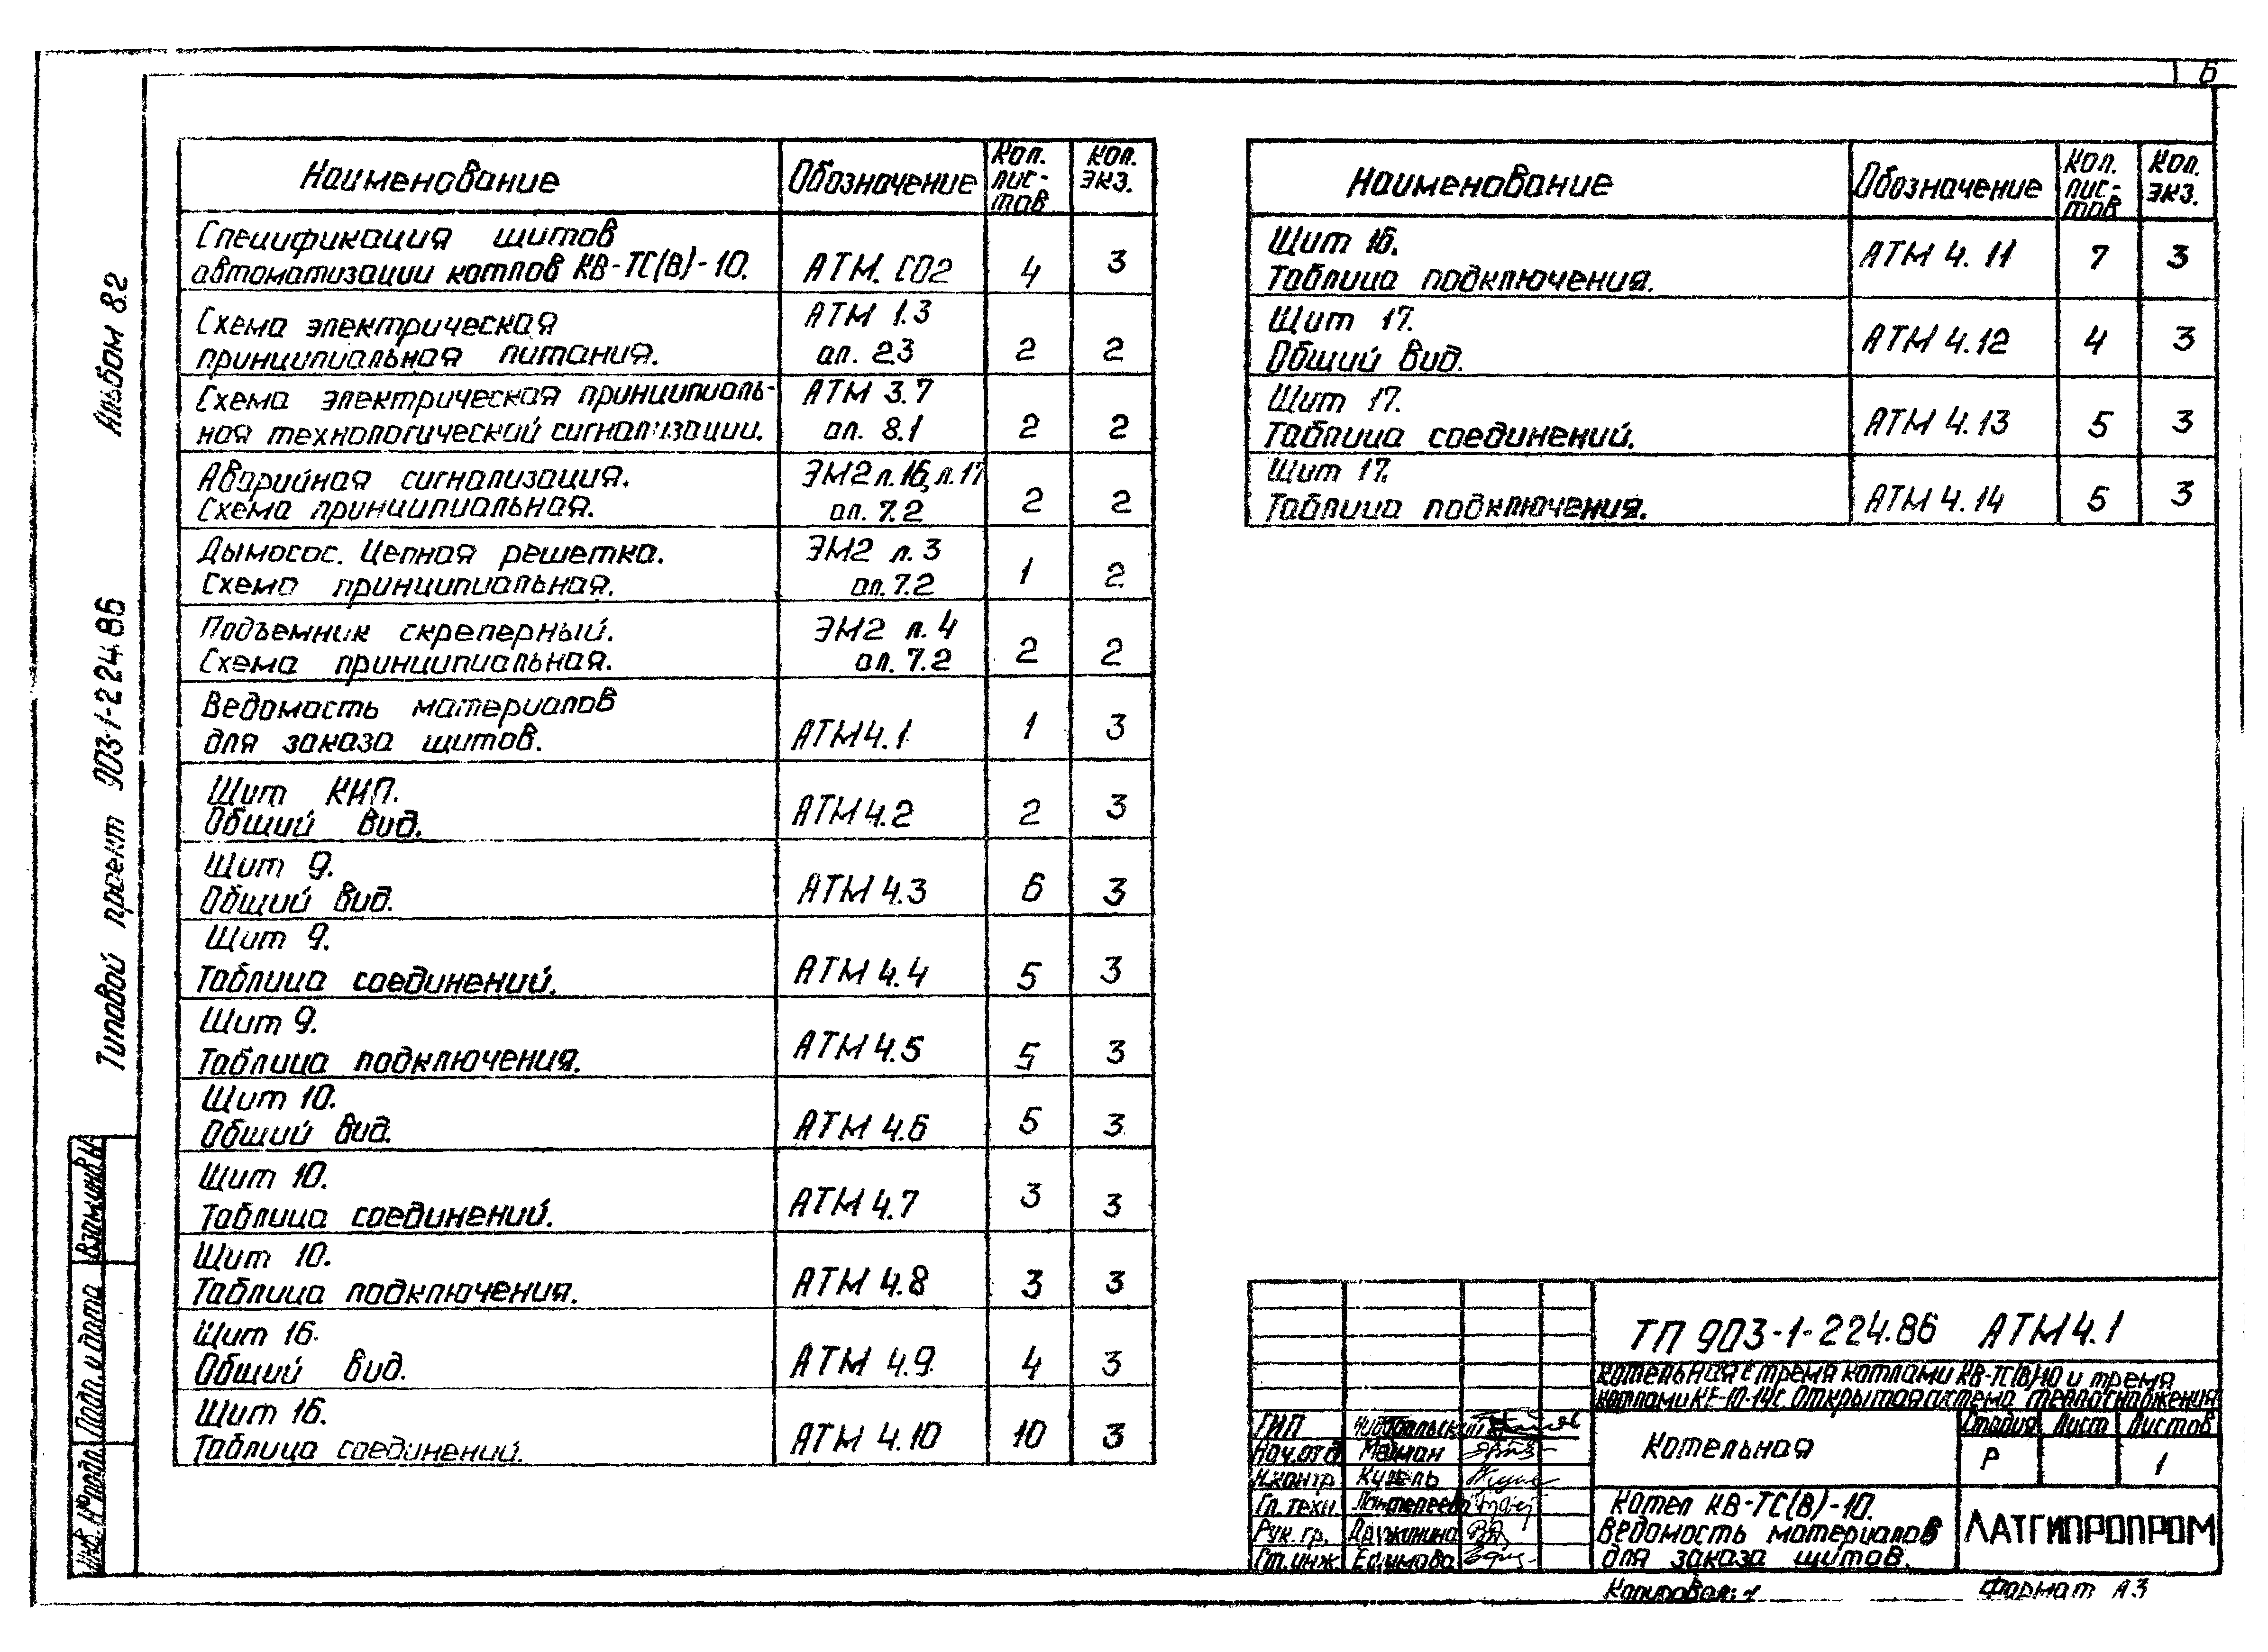 6
Альбом 8.2
Типовой проект 903-1-224.86
Взам.инв.№
Подп. и дата
Инв. № подл.
Наименование
Обозначение
Кол. лис- тов
Кол. экз.
Спецификация щитов
автоматизации котлов КВ-ТС(В)-10.
АТМ. СО2
4
3
Схема электрическая
принципиальная питания.
АТМ 1.3
ал. 2.3
2
2
Схема электрическая принципиаль-
ная технологический сигнализации.
АТМ 3.7
ал. 8.1
2
2
Аварийная сигнализация.
Схема принципиальная.
ЭМ2 л.16, л.17
ал. 7.2
2
2
Дымосос. Цепная решетка.
Схема принципиальная.
ЭМ2 л. 3
ал. 7.2
1
2
Подъемник скреперный.
Схема принципиальная.
ЭМ2 л. 4
ал. 7.2
2
2
Ведомасть материалов
для заказа щитов.
АТМ 4.1
1
3
Щит КИП.
Общий вид.
АТМ 4.2
2
3
Щит 9.
Общий вид.
АТМ 4.3
6
3
Щит 9.
Таблица соединений.
АТМ 4.4
5
3
Щит 9.
Таблица подключения.
АТМ 4.5
5
3
Щит 10.
Общий вид.
АТМ 4.6
5
3
Щит 10.
Таблица соединений.
АТМ 4.7
3
3
Щит 10.
Таблица подключения.
АТМ 4.8
3
3
Щит 16.
Общий вид.
АТМ 4.9
4
3
Щит 16.
Таблица соединений.
АТМ 4.10
10
3
Наименование
Обозначение
Кол. лис- тов
Кол. экз.
Щит 16.
Таблица подключения.
АТМ 4.11
7
3
Щит 17.
Общий вид.
АТМ 4.12
4
3
Щит 17.
Таблица соединений.
АТМ 4.13
5
3
Щит 17.
Таблица подключения.
АТМ 4.14
5
3
ТП 903-1-224.86 АТМ 4.1
Котельная с тремя котлами КВ-ТС(В)-10 и тремя
котлами КЕ-10-14с. Открытая система теплоснабжения
ГИП
Нач.отд Мейман
Н.контр Кузель
Гл.техн. Пантелеева
Рук. гр. Дружинина
Ст.инж. Ефимова
Котельная
Стадия Лист Листов
Р 1
Котел КВ-ТС(В)-10.
Ведомость материалов
для заказа щитов.
ЛАТГИПРОПРОМ
Копировал:
Формат А3